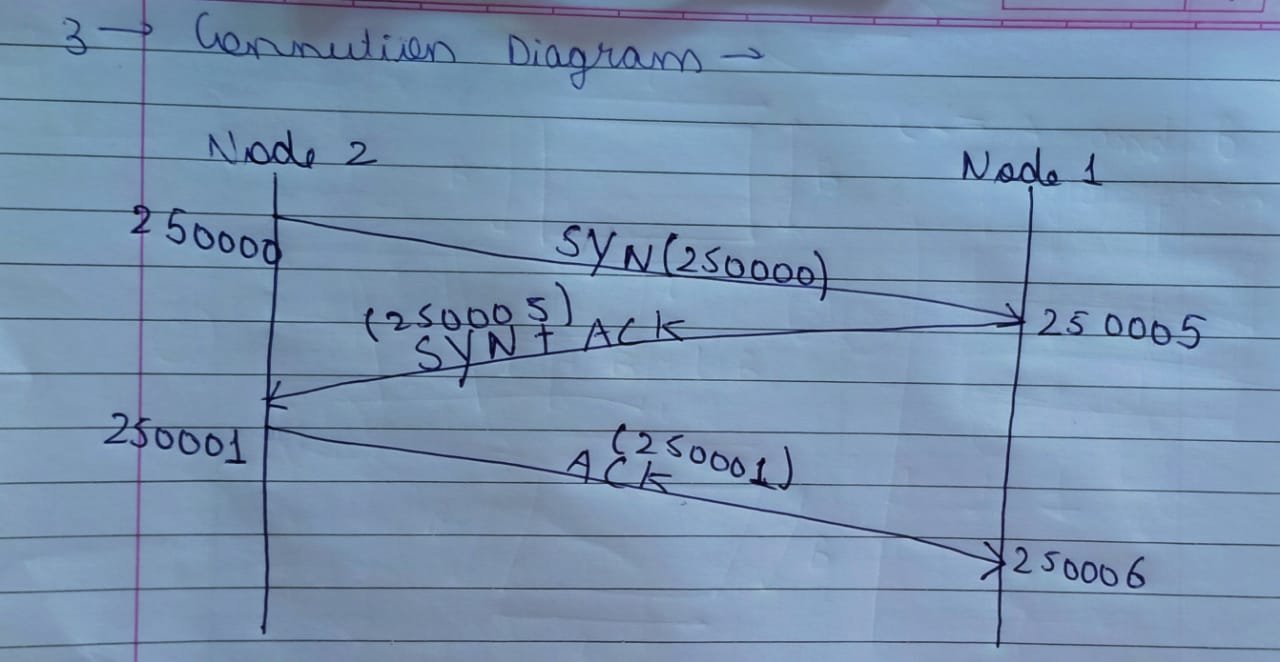 3 → Connection Diagram →
Node 2
Node 1
250000
SYN(250000)
(250005)
SYN + ACK
250005
250001
(250001)
ACK
250006